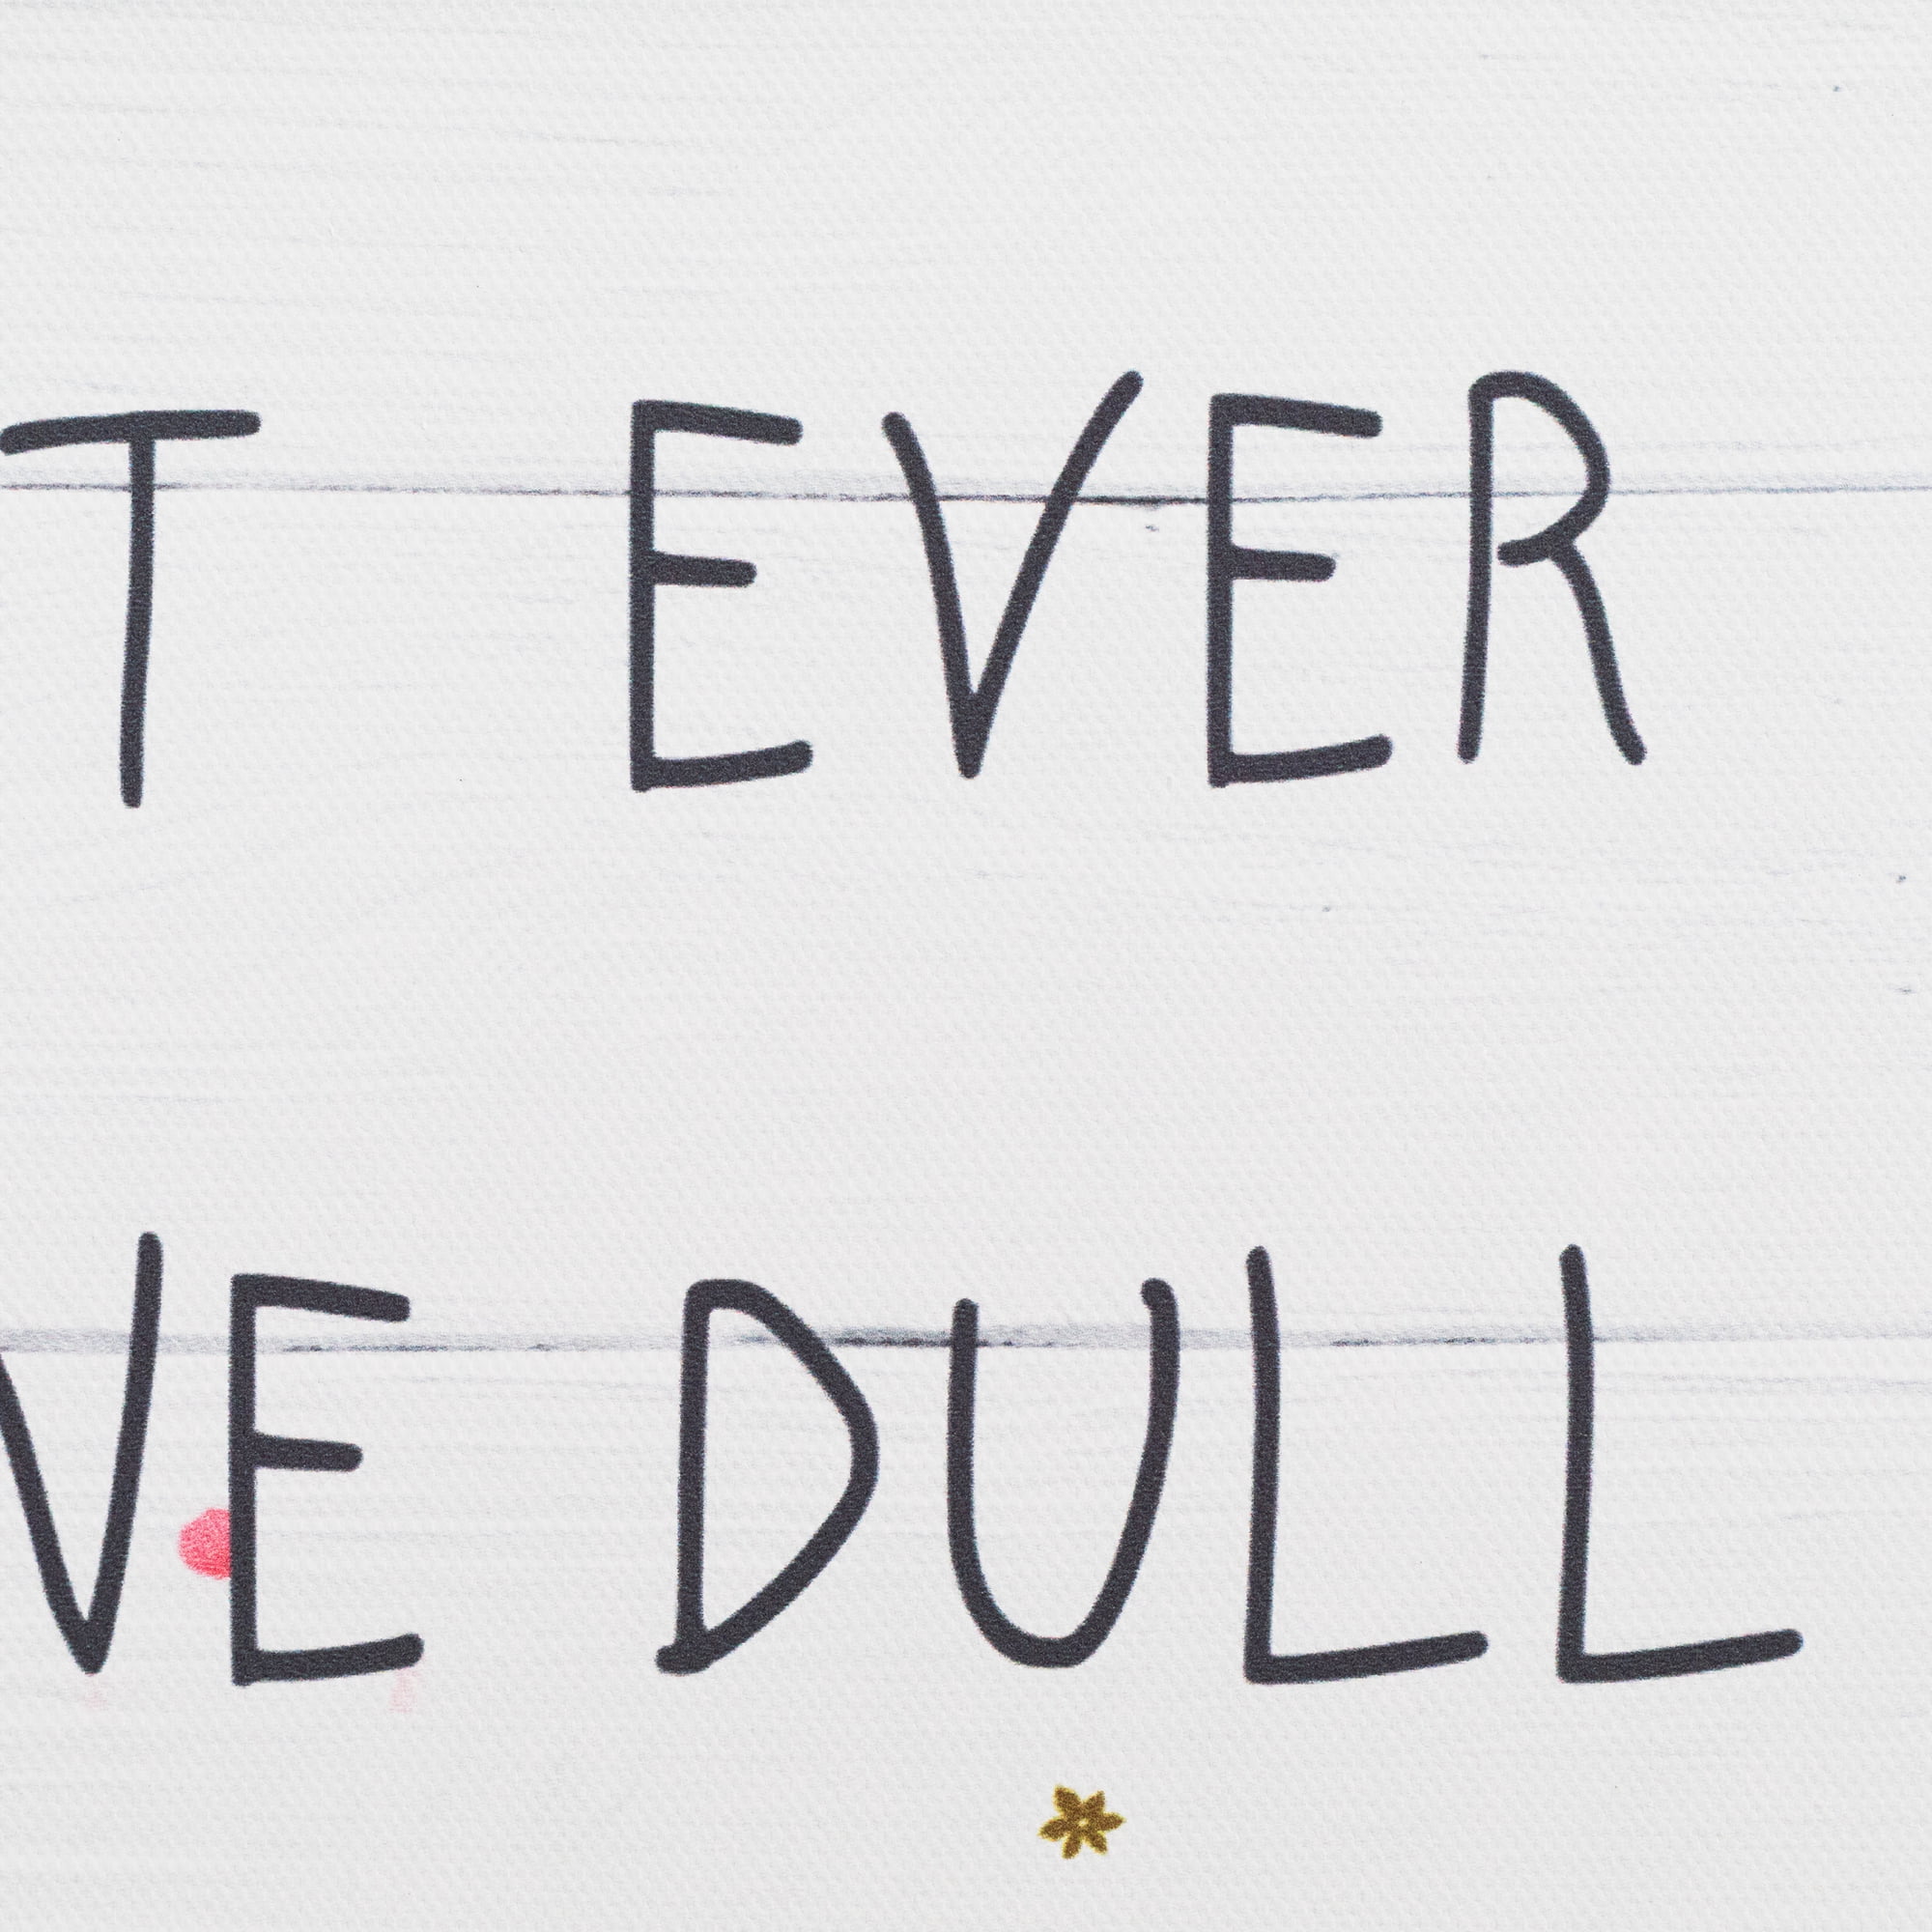 T EVER
VE DULL